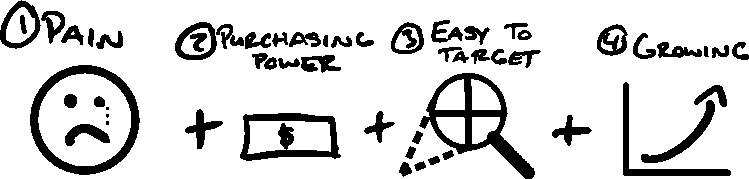 ① PAIN
② PURCHASING
POWER
③ EASY TO
TARGET
④ GROWING
$